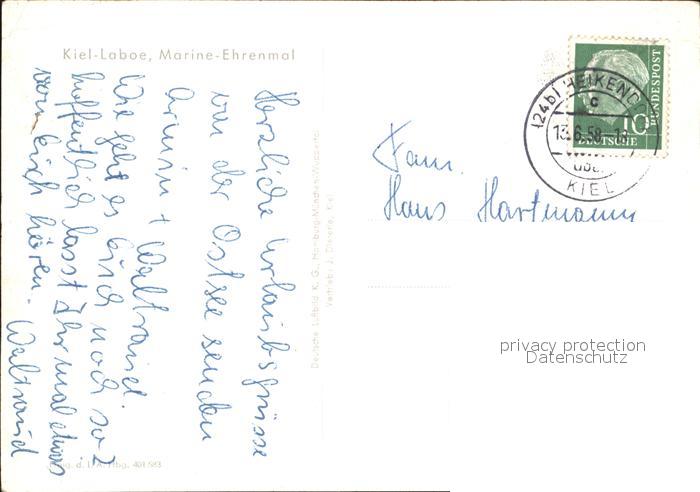 Kiel-Laboe, Marine-Ehrenmal
Herzliche Urlaubsgrüsse
von der Ostsee senden
Armin + Waltraud.
Wie geht es Euch noch so?
hoffentlich lasst Ihr mal etwas
von Euch hören. Waltraud
Deutsche Luftbild K. G., Hamburg-München-Wuppertal
Vertrieb: J. Kiel
d. L. A. Hbg. 401/583
(24b) HEIKENDO
c
13.6.58
über
KIEL
10
DEUTSCHE
BUNDESPOST
Fam.
Hans Hartmann
privacy protection
Datenschutz